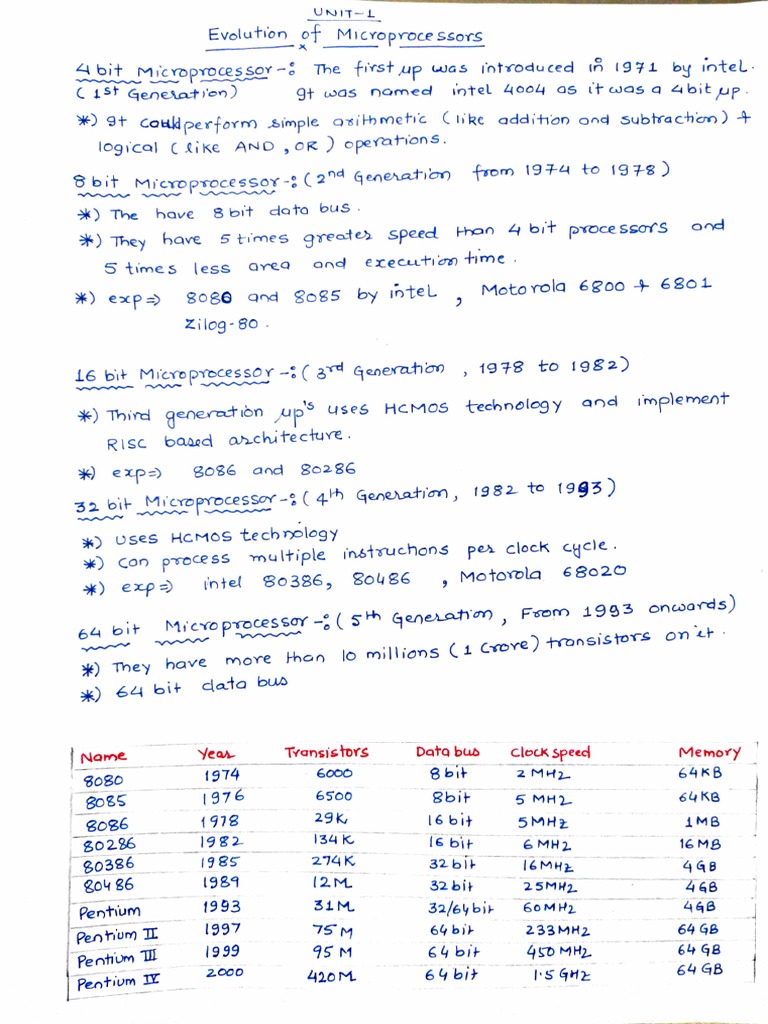 UNIT-1
Evolution of Microprocessors
4 bit Microprocessor -: The first μp was introduced in 1971 by intel.
(1st Generation) It was named intel 4004 as it was a 4 bit μp.
*) It could perform simple arithmetic (like addition and subtraction) &
logical (like AND, OR) operations.
8 bit Microprocessor -: (2nd Generation from 1974 to 1978)
*) The have 8 bit data bus.
*) They have 5 times greater speed than 4 bit processors and
5 times less area and execution time.
*) exp => 8080 and 8085 by intel, Motorola 6800 & 6801
Zilog-80.
16 bit Microprocessor -: (3rd Generation, 1978 to 1982)
*) Third generation μp's uses HCMOS technology and implement
RISC based architecture.
*) exp => 8086 and 80286
32 bit Microprocessor -: (4th Generation, 1982 to 1993)
*) uses HCMOS technology
*) can process multiple instructions per clock cycle.
*) exp => intel 80386, 80486, Motorola 68020
64 bit Microprocessor -: (5th Generation, From 1993 onwards)
*) They have more than 10 millions (1 Crore) transistors on it.
*) 64 bit data bus
Name Year Transistors Data bus Clock speed Memory
8080 1974 6000 8 bit 2 MHz 64 KB
8085 1976 6500 8bit 5 MHz 64 KB
8086 1978 29K 16 bit 5 MHz 1 MB
80286 1982 134 K 16 bit 6 MHz 16 MB
80386 1985 274K 32 bit 16 MHz 4 GB
80486 1989 12 M 32 bit 25 MHz 4 GB
Pentium 1993 31 M 32/64 bit 60 MHz 4 GB
Pentium II 1997 75 M 64 bit 233 MHz 64 GB
Pentium III 1999 95 M 64 bit 450 MHz 64 GB
Pentium IV 2000 420 M 64 bit 1.5 GHz 64 GB